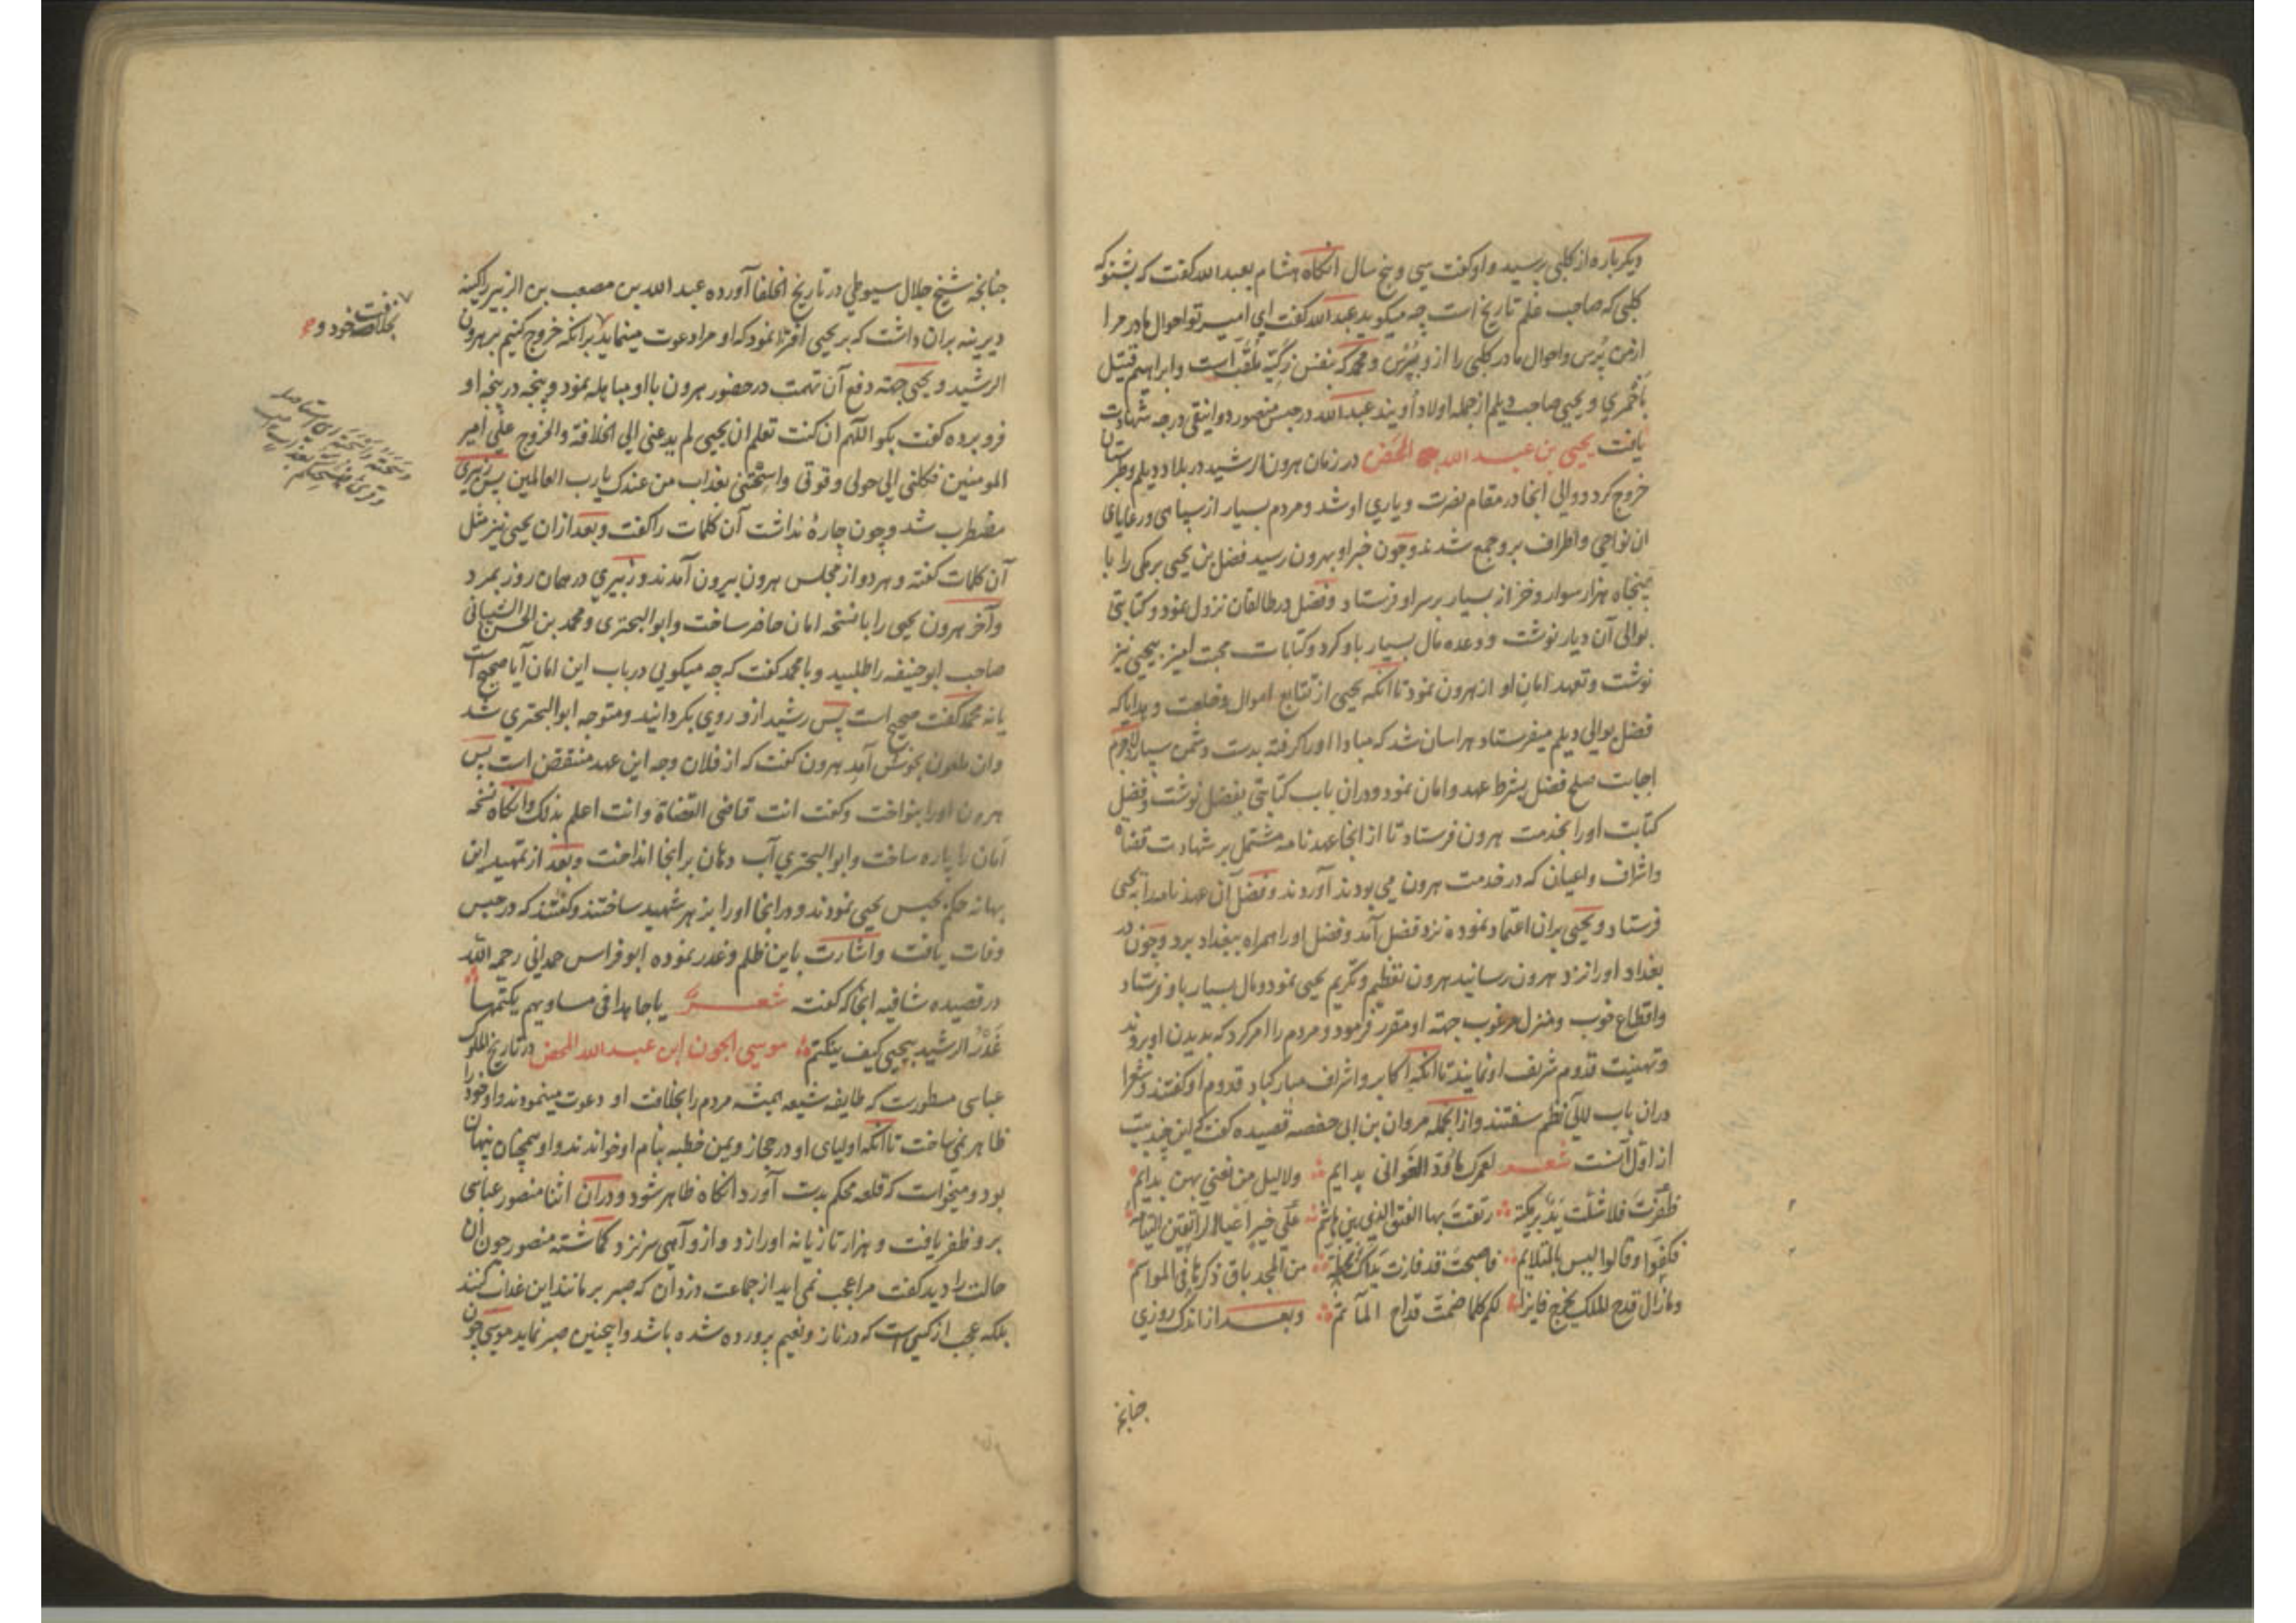 دیکر باره از کلبی پرسید و او کفت سی و پنج سال انکاه هشام بعبد الله کفت که بشنو که
کلبی که صاحب علم تاریخ است چه میکوید عبد الله کفت ای امیر تو احوال مادر مرا
ازمن پُرس و احوال مادر کلبی را ازو بپُرس و محمد که بنفس زکیّه ملقب است و ابراهیم قتیل
باخمری و یحیی صاحب دیلم از جمله اولاد اویند عبد الله در حبس منصور دوانیقی درجه شهادت
یافت یحیی بن عبد الله المحض در زمان هرون الرشید در بلاد دیلم و طبرستان
خروج کرد و والی انجا در مقام نصرت و یاری او شد و مردم بسیار از سپاهی و رعایای
ان نواحی و اطراف برو جمع شدند و چون خبر او بهرون رسید فضل بن یحیی برمکی را با
پنجاه هزار سوار و خزانه بسیار بر سر او فرستاد و فضل در طالقان نزول نمود و کتابتی
بوالی آن دیار نوشت و وعده مال بسیار باو کرد و کتابات محبت امیز بیحیی نیز
نوشت و تعهد امان او از هرون نمود تا انکه یحیی از تتابع اموال و خلعت و هدایا که
فضل بوالی دیلم میفرستاد هراسان شد که مبادا او را کرفته بدست دشمن سپارد لاجرم
اجابت صلح فضل بشرط عهد و امان نمود و دران باب کتابتی بفضل نوشت و فضل
کتابت او را بخدمت هرون فرستاد تا از انجا عهد نامه مشتمل بر شهادت قضاة
و اشراف و اعیان که در خدمت هرون می بودند آوردند و فضل آن عهد نامه را به یحیی
فرستاد و یحیی بران اعتماد نموده نزد فضل آمد و فضل او را همراه ببغداد برد و چون در
بغداد او را نزد هرون رسانید هرون تعظیم و تکریم یحیی نمود و مال بسیار باو فرستاد
و اقطاع خوب و منزل مرغوب جهة او مقرر فرمود و مردم را امر کرد که بدیدن او بروند
و تهنیت قدوم شریف او نمایند تا انکه اکابر و اشراف مبارکباد قدوم او کفتند و شعرا
دران باب لآلی نظم سفتند و از انجمله مروان بن ابی حفصه قصیده کفت که این چند بیت
از اول آنست شعر لعمرک ما وُدّ الغوانی بدایم ولا لیل من تعنی بهن بدایم
ظفرت فلا شلّت ید برمکیّة رتقت بها الفتق الذی بین هاشم علی خیر اعیا الراتقین التیامه
فکفّوا وقالوا لیس بالمتلایم فاصبحت قد فازت یداک بخطّة من المجد باق ذکرها فی المواسم
ومازال قدح الملک یخرج فایزا لکم کلما ضمت قداح المآتم وبعد از اندک روزی
چنانچه
چنانچه شیخ جلال سیوطی در تاریخ الخلفا آورده عبد الله بن مصعب بن الزبیر را کینه
دیرینه بران داشت که بر یحیی افترا نمود که او مرا دعوت مینماید برانکه خروج کنیم بر هرون
الرشید و یحیی جهة دفع آن تهمت در حضور هرون با او مباهله نمود و پنجه در پنجه او
فرو برده کفت بکو اللّهم ان کنت تعلم ان یحیی لم یدعنی الی الخلافة والخروج علی امیر
المومنین فکلنی الی حولی وقوتی واسحتنی بعذاب من عندک یا رب العالمین پس زبیری
مضطرب شد و چون چارۀ نداشت آن کلمات را کفت و بعد ازان یحیی نیز مثل
آن کلمات کفته و هر دو از مجلس هرون بیرون آمدند و زبیری در همان روز بمرد
و آخر هرون یحیی را با نسخه امان حاضر ساخت و ابو البحتری و محمد بن الحسن الشیبانی
صاحب ابو حنیفه را طلبید و با محمد کفت که چه میکویی در باب این امان آیا صحیح است
یا نه محمد کفت صحیح است پس رشید ازو روی بکردانید و متوجه ابو البحتری شد
وان ملعون بخوش آمد هرون کفت که از فلان وجه این عهد منتقض است پس
هرون او را بنواخت و کفت انت قاضی القضاة وانت اعلم بذلک و انکاه نسخه
امان را پاره ساخت و ابو البحتری آب دهان بر انجا انداخت و بعد از تمهید این
بهانه حکم بحبس یحیی نمودند و در انجا او را بزهر شهید ساختند و کفتند که در حبس
وفات یافت و اشارت باین ظلم و غدر نموده ابو فراس حمدانی رحمه الله
در قصیده شافیه انجا که کفت شعر یا جاهدا فی مساویهم یکتمها
غدر الرشید بیحیی کیف ینکتم موسی الجون ابن عبد الله المحض در تاریخ الملوک
عباسی مسطورست که طایفه شیعه همیشه مردم را بخلافت او دعوت مینمودند و او خود را
ظاهر نمی ساخت تا انکه اولیای او در حجاز و یمن خطبه بنام او خواندند و او همچنان پنهان
بود و میخواست که قلعه محکم بدست آورد انکاه ظاهر شود و دران اثنا منصور عباسی
برو ظفر یافت و هزار تازیانه او را زد و ازو آهی سر نزد کماشته منصور چون ان
حالت را دید کفت مرا عجب نمی آید از جماعت دزدان که صبر بر مانند این عذاب کنند
بلکه عجب از کسی است که در ناز و نعیم پرورده شده باشد و اینچنین صبر نماید موسی چون
بخلافت خود و